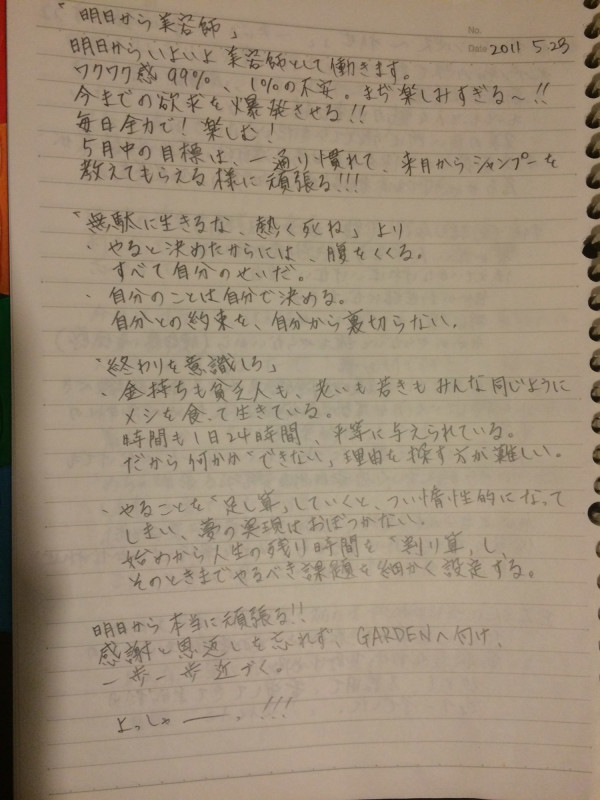 「明日から美容師」
No.
Date 2011 5.23
明日からいよいよ美容師として働きます。
ワクワク感99%、1%の不安。まぢ楽しみすぎる〜!!
今までの欲求を爆発させる!!
毎日全力で!楽しむ!
5月中の目標は、一通り慣れて、来月からシャンプーを
教えてもらえる様に頑張る!!!
「無駄に生きるな、熱く死ね」より
・やると決めたからには、腹をくくる。
すべて自分のせいだ。
・自分のことは自分で決める。
自分との約束を、自分から裏切らない。
「終わりを意識しろ」
・金持ちも貧乏人も、老いも若きもみんな同じように
メシを食って生きている。
時間も1日24時間、平等に与えられている。
だから何かが"できない"理由を探す方が難しい。
・やることを"足し算"していくと、つい惰性的になって
しまい、夢の実現はおぼつかない。
始めから人生の残り時間を"割り算"し、
そのときまでやるべき課題を細かく設定する。
明日から本当に頑張る!!
感謝と恩返しを忘れず、GARDENへ付け、
一歩一歩近づく。
よっしゃー。!!!